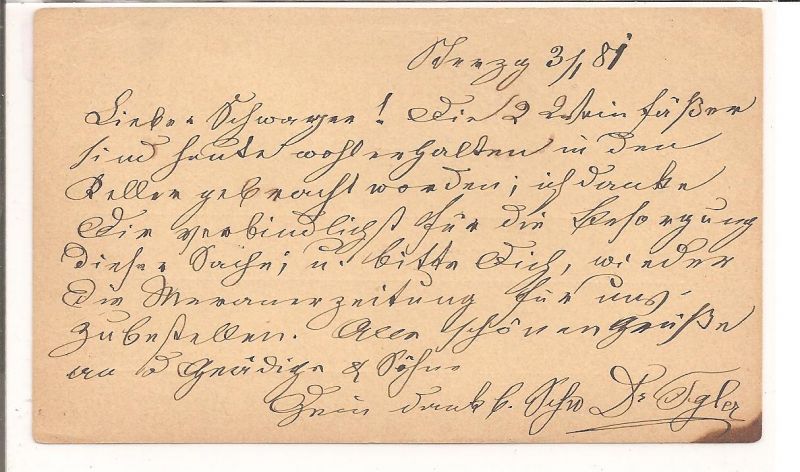 Sterzg 3/1 81
Lieber Schwager! Die 2 Weinfäßer
sind heute wohlerhalten in den
Keller gebracht worden; ich danke
Dir verbindlichst für die Besorgung
dieser Sache; u. bitte Dich, wieder
die Meranerzeitung für uns
zubestellen. Alle schönen Grüße
an d Gnädige & Söhne
Dein dankb. Schw Dr